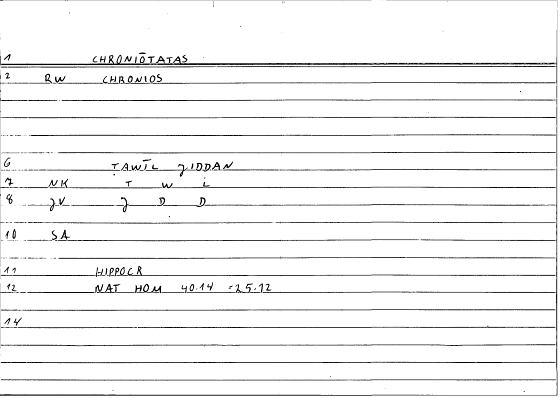 1 CHRONIŌTATAS
2 RW CHRONIOS
6 ṬAWĪL ǦIDDAN
7 NK Ṭ W L
8 ǦV Ǧ D D
10 SA
11 HIPPOCR
12 NAT HOM 40.14 = 25.12
14